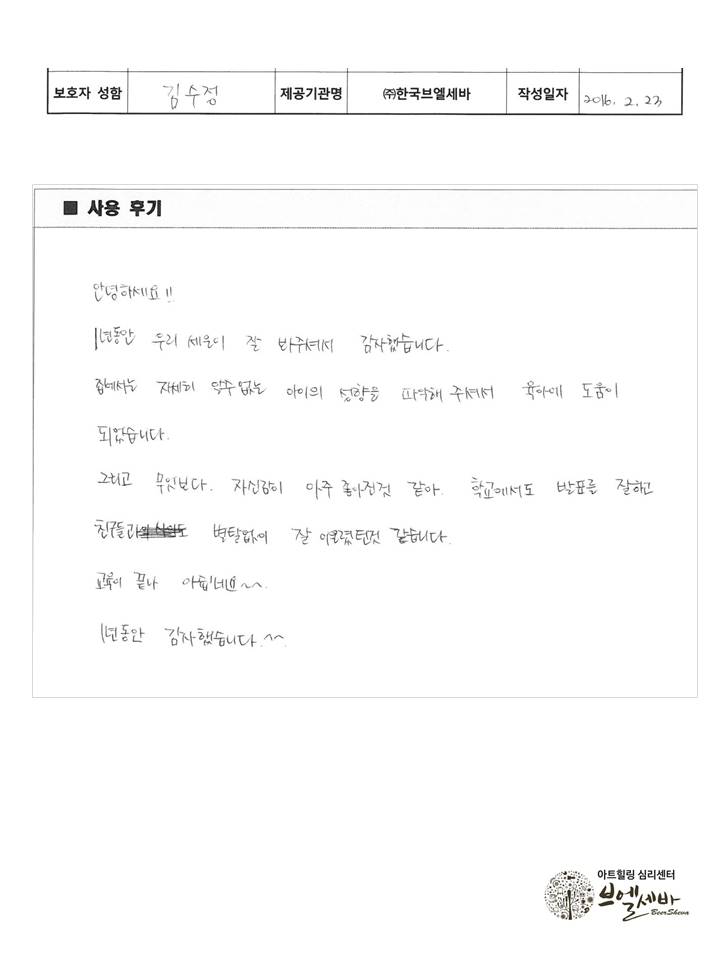 보호자 성함 김수정 제공기관명 ㈜한국브엘세바 작성일자 2016. 2. 23
■ 사용 후기
안녕하세요!!
1년동안 우리 세운이 잘 봐주셔서 감사했습니다.
집에서는 자세히 알수 없는 아이의 성향을 파악해 주셔서 육아에 도움이
되었습니다.
그리고 무엇보다. 자신감이 아주 좋아진것 같아. 학교에서도 발표를 잘하고
친구들과 별탈없이 잘 어울렸던것 같습니다.
교육이 끝나 아쉽네요~~.
1년동안 감사했습니다.^^.
아트힐링 심리센터
브엘세바
BeerSheva